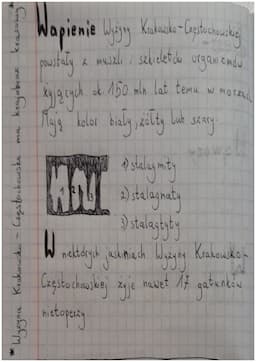 Wapienie Wyżyny Krakowsko-Częstochowskiej
powstały z muszli i szkieletów organizmów
żyjących ok 150 mln lat temu w morzach.
Mają kolor biały, żółty lub szary.
1) stalagmity
2) stalagnaty
3) stalaktyty
1 2 3
W niektórych jaskiniach Wyżyny Krakowsko-
Częstochowskiej żyje nawet 17 gatunków
nietoperzy
* Wyżyna Krakowsko-Częstochowska ma krajobraz krasowy